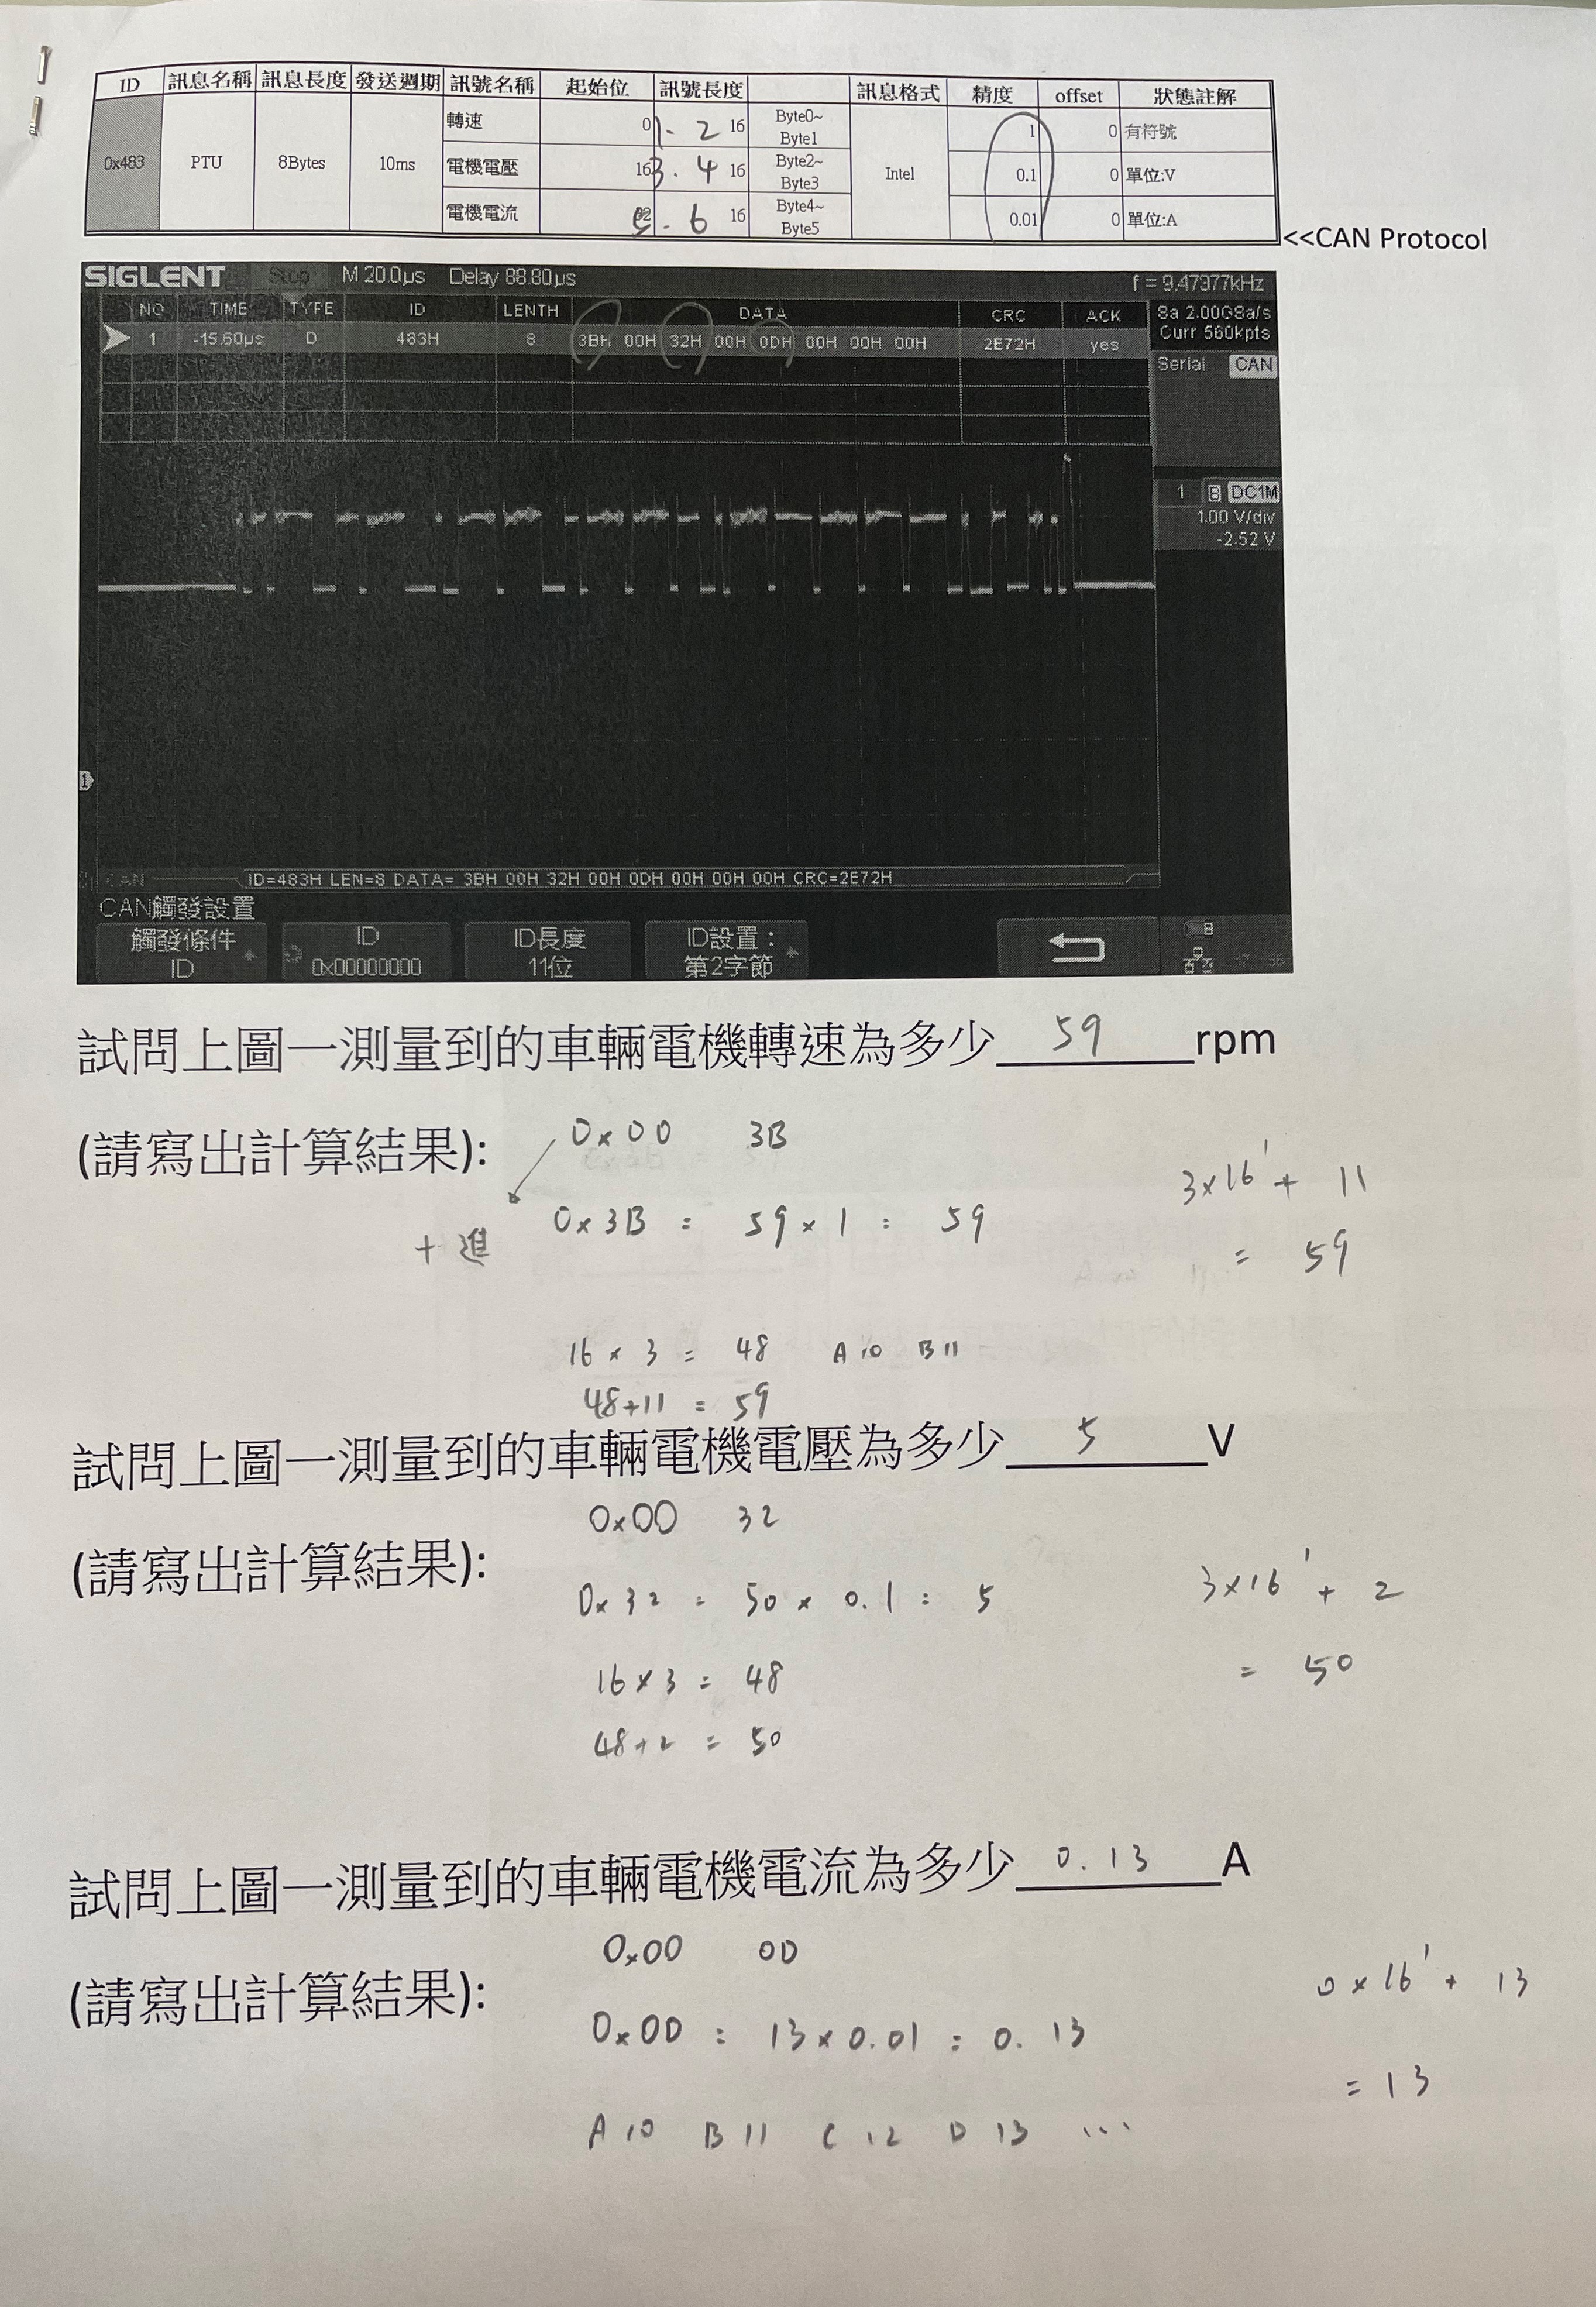 ID 訊息名稱 訊息長度 發送週期 訊號名稱 起始位 訊號長度 訊息格式 精度 offset 狀態註解
0x483 PTU 8Bytes 10ms Intel
轉速 0 1. 2 16 Byte0~ Byte1 1 0 有符號
電機電壓 16 3. 4 16 Byte2~ Byte3 0.1 0 單位:V
電機電流 5. 6 16 Byte4~ Byte5 0.01 0 單位:A
<<CAN Protocol
SIGLENT Stop M 20.0µs Delay 88.80µs f = 9.47977kHz
NO TIME TYPE ID LENTH DATA CRC ACK
1 -15.60µs D 483H 8 3BH 00H 32H 00H 0DH 00H 00H 00H 2E72H yes
Sa 2.00GSa/s
Curr 560kpts
Serial CAN
1 B DC1M
1.00 V/div
-2.52 V
CAN ID=483H LEN=8 DATA= 3BH 00H 32H 00H 0DH 00H 00H 00H CRC=2E72H
CAN觸發設置
觸發條件 ID ID長度 ID設置：
ID 0x00000000 11位 第2字節
試問上圖一測量到的車輛電機轉速為多少 59 rpm
(請寫出計算結果):
0x00 3B
3x16¹ + 11
0x3B = 59 x 1 = 59
十進
= 59
16 x 3 = 48 A 10 B 11
48+11 = 59
試問上圖一測量到的車輛電機電壓為多少 5 V
0x00 32
(請寫出計算結果):
3x16¹ + 2
0x32 = 50 x 0.1 = 5
= 50
16x3 = 48
48+2 = 50
試問上圖一測量到的車輛電機電流為多少 0.13 A
0x00 0D
(請寫出計算結果):
0x16¹ + 13
0x0D = 13x0.01 = 0.13
= 13
A 10 B 11 C 12 D 13 ...